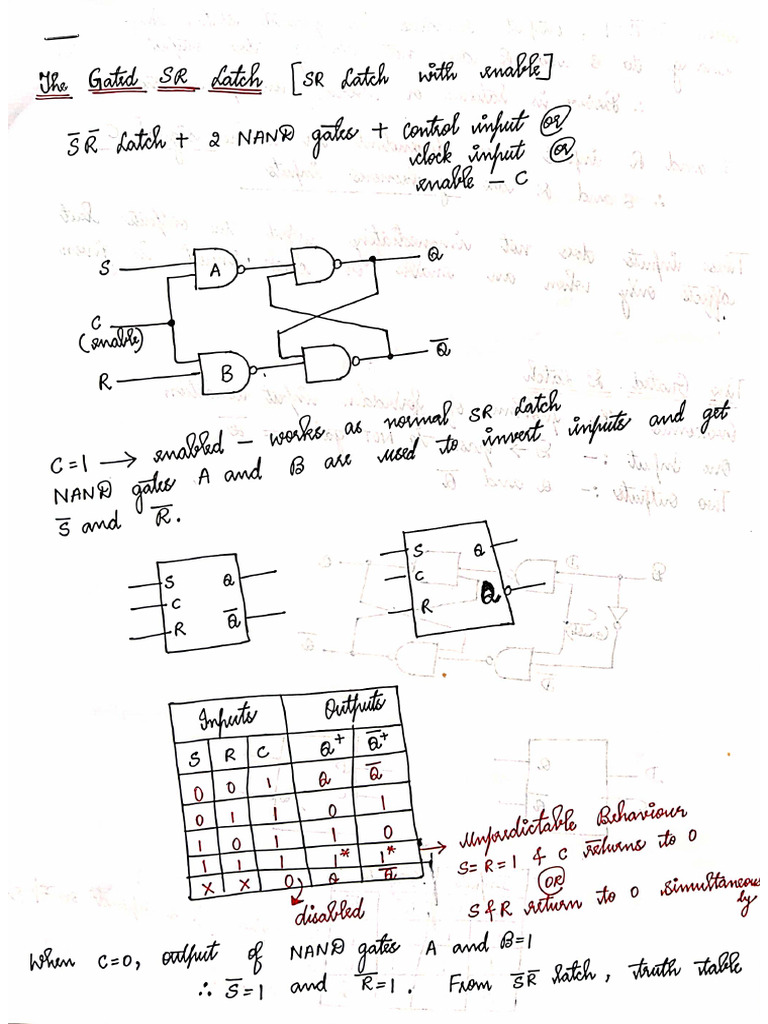 The Gated SR Latch [SR Latch with enable]
S̅ R̅ Latch + 2 NAND gates + control input or
clock input or
enable – C
S
A
Q
C
(enable)
R
B
Q̅
C=1 → enabled – works as normal SR Latch
NAND gates A and B are used to invert inputs and get
S̅ and R̅.
S Q
C
R Q̅
S Q
C
R Q
Inputs Outputs
S R C Q⁺ Q̅⁺
0 0 1 Q Q̅
0 1 1 0 1
1 0 1 1 0
1 1 1 1* 1*
X X 0 Q Q̅
disabled
→ Unpredictable Behaviour
S=R=1 & C returns to 0
OR
S & R return to 0 simultaneous
ly
When C=0, output of NAND gates A and B=1
∴ S̅=1 and R̅=1. From S̅R̅ latch, truth table